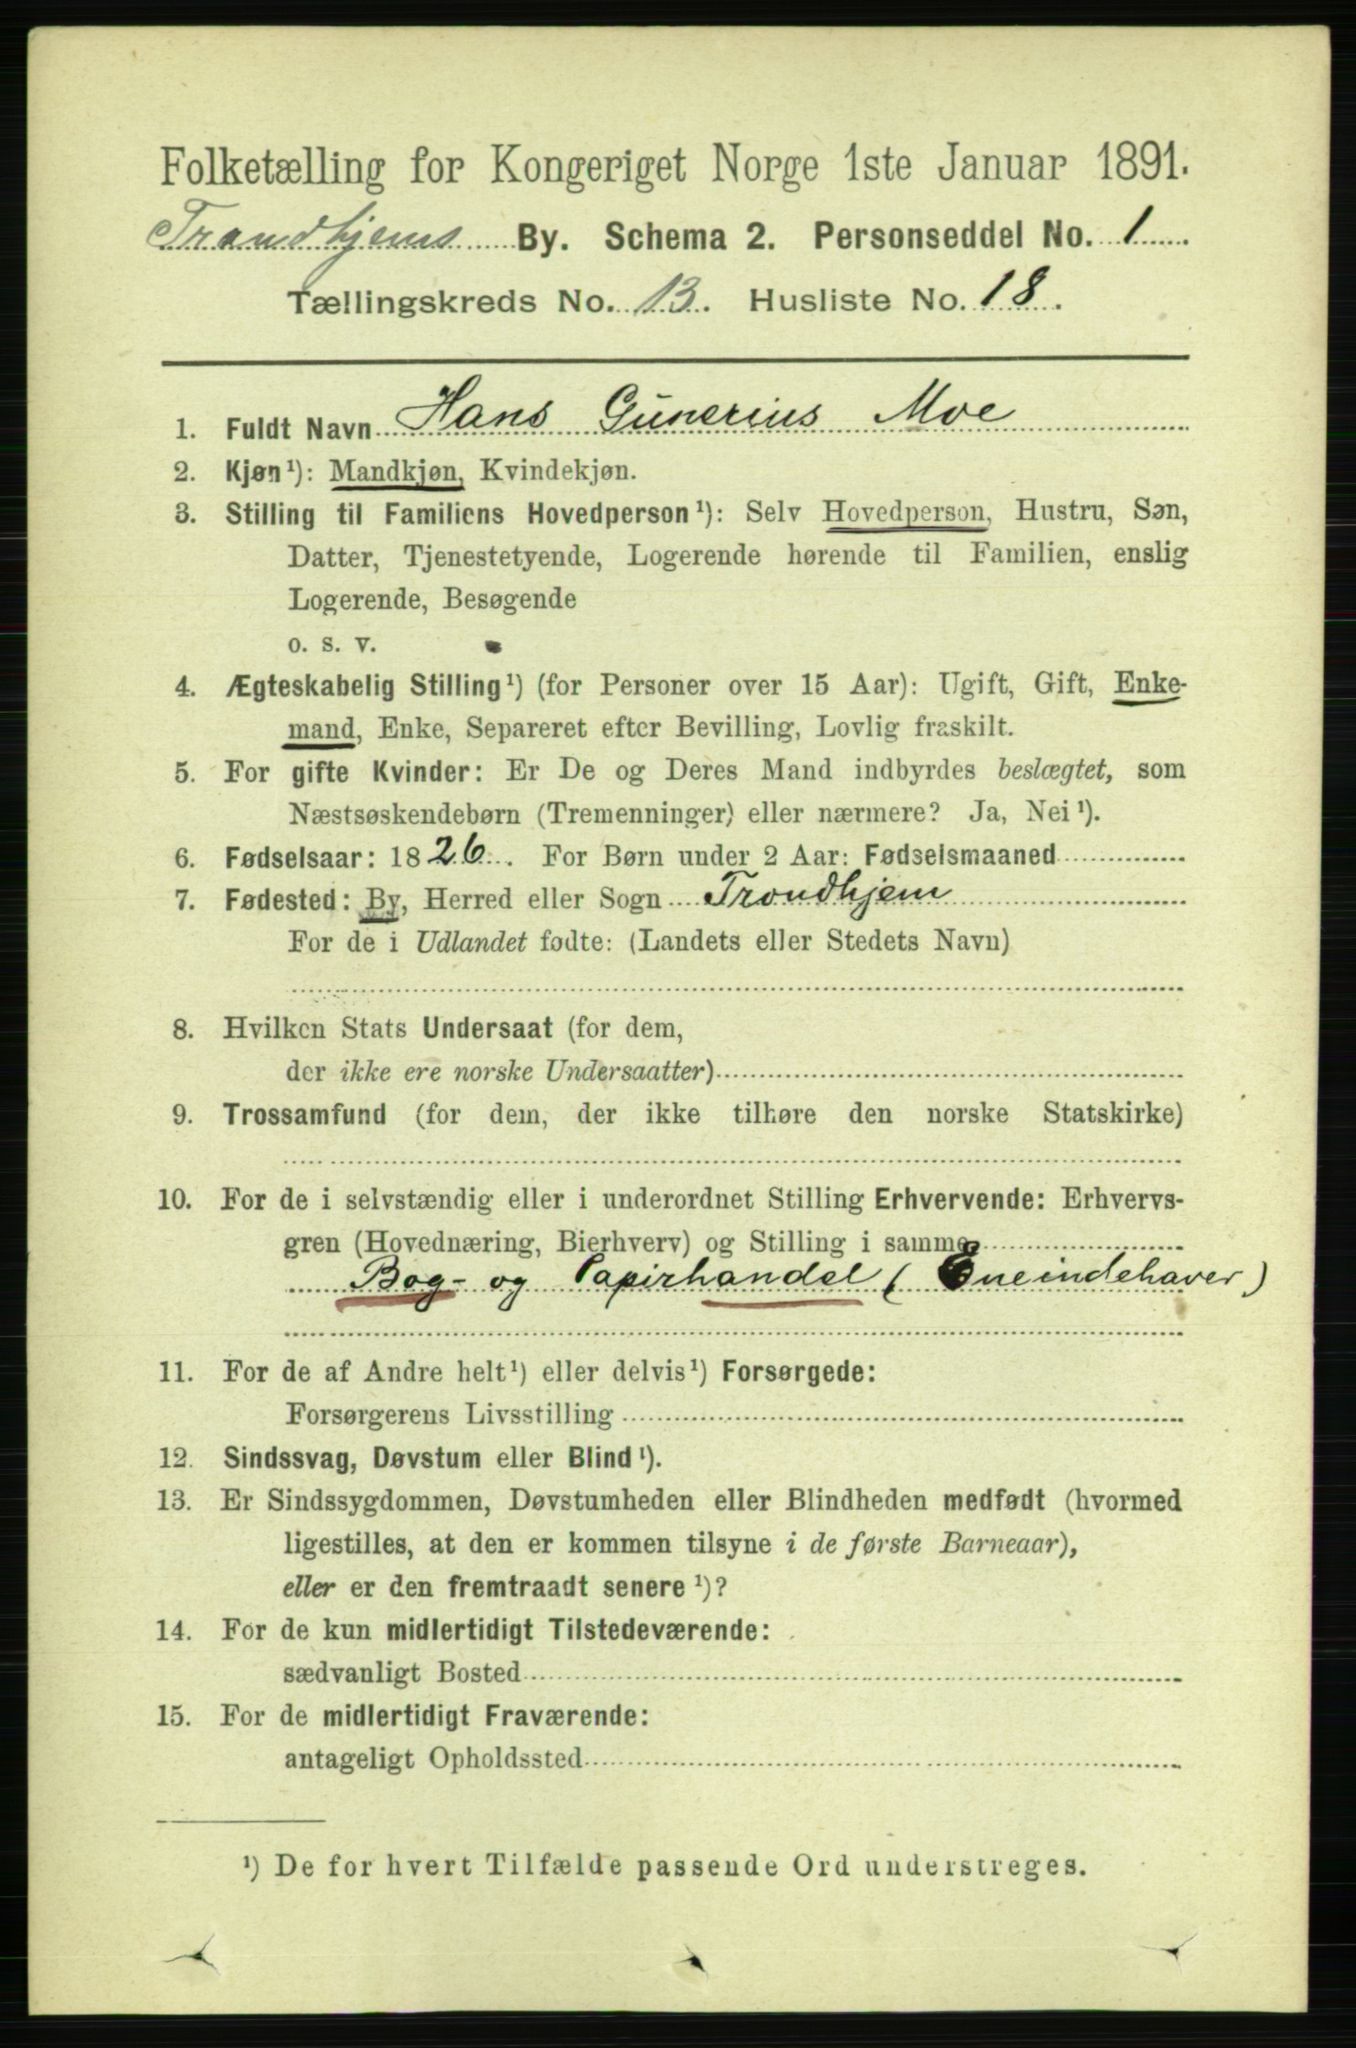 Folketælling for Kongeriget Norge 1ste Januar 1891.
Trondhjems By. Schema 2. Personseddel No. 1
Tællingskreds No. 13. Husliste No. 18.
1. Fuldt Navn Hans Gunerius Moe
2. Kjøn¹): Mandkjøn, Kvindekjøn.
3. Stilling til Familiens Hovedperson¹): Selv Hovedperson, Hustru, Søn,
Datter, Tjenestetyende, Logerende hørende til Familien, enslig
Logerende, Besøgende
o. s. v.
4. Ægteskabelig Stilling¹) (for Personer over 15 Aar): Ugift, Gift, Enke-
mand, Enke, Separeret efter Bevilling, Lovlig fraskilt.
5. For gifte Kvinder: Er De og Deres Mand indbyrdes beslægtet, som
Næstsøskendebørn (Tremenninger) eller nærmere? Ja, Nei¹).
6. Fødselsaar: 1826. For Børn under 2 Aar: Fødselsmaaned
7. Fødested: By, Herred eller Sogn Trondhjem
For de i Udlandet fødte: (Landets eller Stedets Navn)
8. Hvilken Stats Undersaat (for dem,
der ikke ere norske Undersaatter)
9. Trossamfund (for dem, der ikke tilhøre den norske Statskirke)
10. For de i selvstændig eller i underordnet Stilling Erhvervende: Erhvervs-
gren (Hovednæring, Bierhverv) og Stilling i samme
Bog- og Papirhandel (Eneindehaver)
11. For de af Andre helt¹) eller delvis¹) Forsørgede:
Forsørgerens Livsstilling
12. Sindssvag, Døvstum eller Blind¹).
13. Er Sindssygdommen, Døvstumheden eller Blindheden medfødt (hvormed
ligestilles, at den er kommen tilsyne i de første Barneaar),
eller er den fremtraadt senere¹)?
14. For de kun midlertidigt Tilstedeværende:
sædvanligt Bosted
15. For de midlertidigt Fraværende:
antageligt Opholdssted
¹) De for hvert Tilfælde passende Ord understreges.